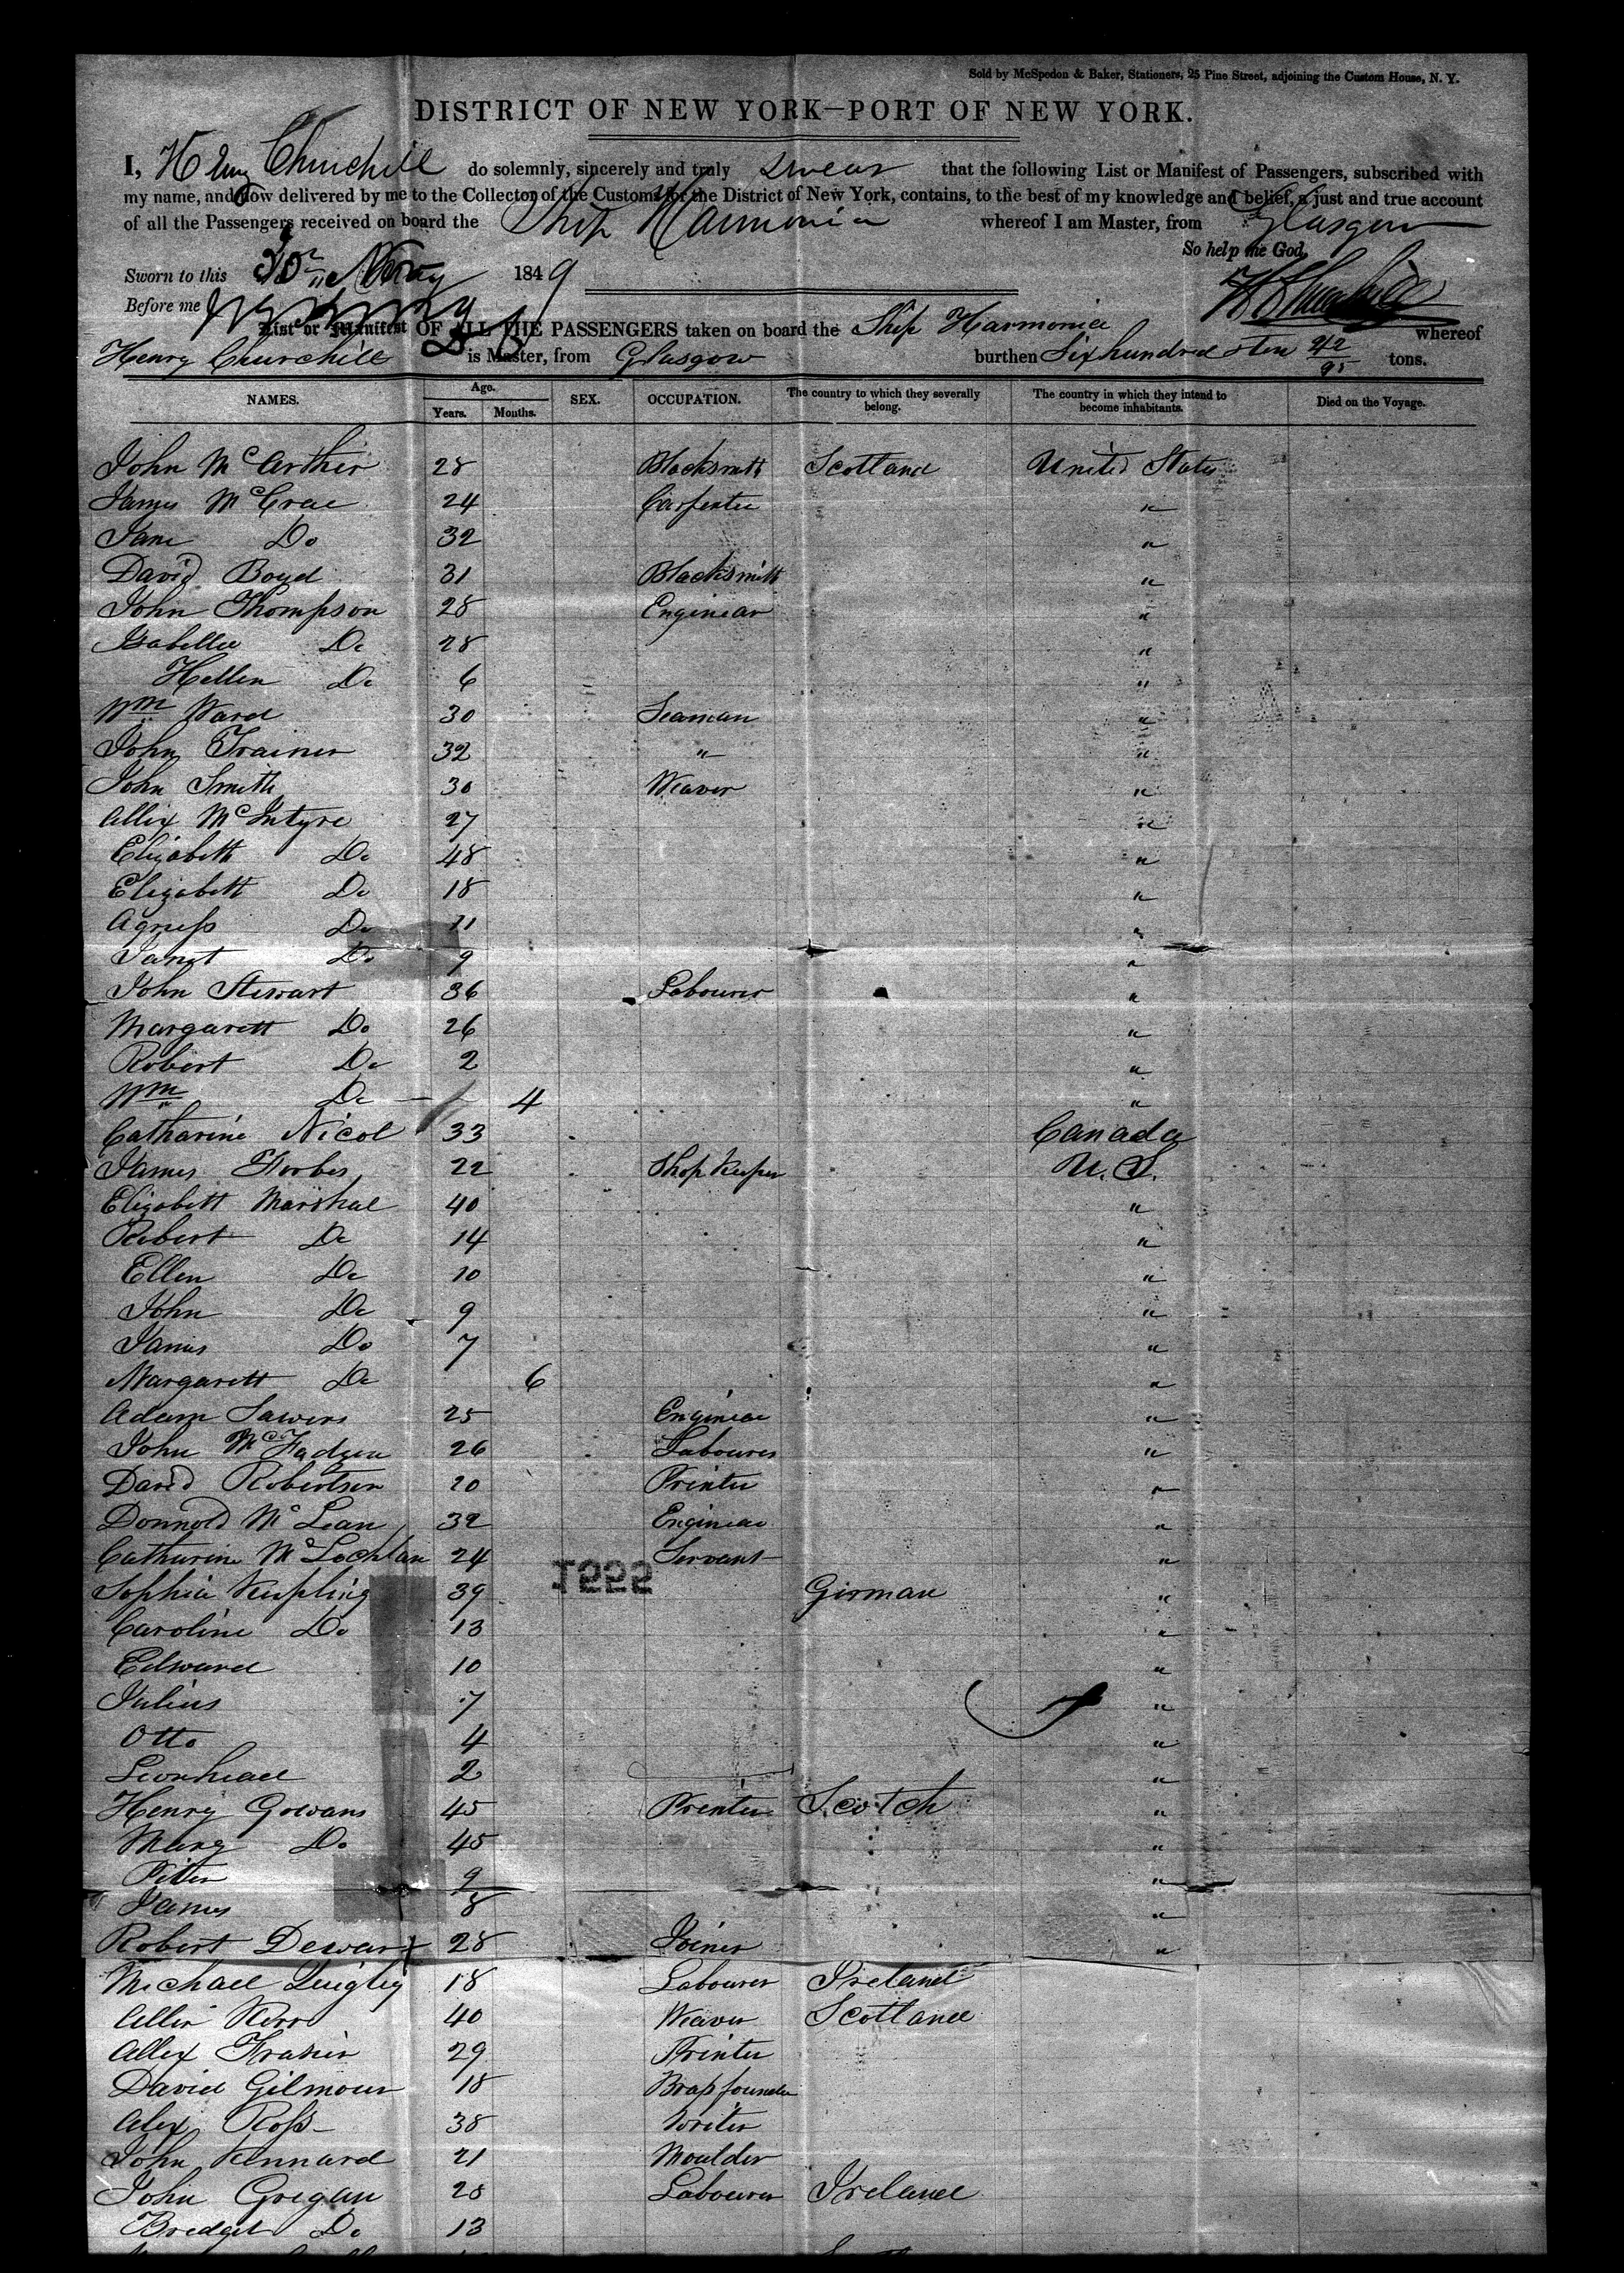 Sold by McSpedon & Baker, Stationers, 25 Pine Street, adjoining the Custom House, N. Y.
DISTRICT OF NEW YORK—PORT OF NEW YORK.
I, Henry Churchill do solemnly, sincerely and truly swear that the following List or Manifest of Passengers, subscribed with
my name, and now delivered by me to the Collector of the Customs for the District of New York, contains, to the best of my knowledge and belief, a just and true account
of all the Passengers received on board the Ship Harmonia whereof I am Master, from Glasgow
So help me God.
Sworn to this 30 May 1849
Before me
H Churchill
List or Manifest OF ALL THE PASSENGERS taken on board the Ship Harmonia whereof
Henry Churchill is Master, from Glasgow burthen Six hundred & ten 42/95 tons.
NAMES. Age. Years. Months. SEX. OCCUPATION. The country to which they severally belong. The country in which they intend to become inhabitants. Died on the Voyage.
John McArthir 28 Blacksmith Scotland United States
James McCrae 24 Carpenter "
Jane Do 32 "
David Boyd 31 Blacksmith "
John Thompson 28 Enginear "
Isabella Do 28 "
Hellen Do 6 "
Wm Ward 30 Seaman "
John Trainer 32 " "
John Smith 30 Weaver "
Allix McIntyre 27 "
Elizabeth Do 48 "
Elizabeth Do 18 "
Agness Do 11 "
Janet Do 9 "
John Stewart 36 Labourer "
Margarett Do 26 "
Robert Do 2 "
Wm Do 4 "
Catharine Nicol 33 Canada
James Forbes 22 Shop Keeper U.S.
Elizabeth Marshal 40 "
Robert Do 14 "
Ellen Do 10 "
John Do 9 "
James Do 7 "
Margarett Do 6 "
Adam Sawers 25 Enginear "
John McFadyen 26 Labourer "
David Robertson 20 Printer "
Donnold McLean 32 Enginear "
Catharine McLochlan 24 Servant "
1555
Sophia Kupling 39 German "
Caroline Do 13 "
Edward 10 "
Julius 7 "
Otto 4 "
2 "
Henry Gowans 45 Printer Scotch "
Mary Do 45 "
Peter 9 "
James 8 "
Robert Dewar 28 Joiner "
Michael Quigley 18 Labourer Ireland
Kerr 40 Weaver Scotland
Allex Frasier 29 Printer
David Gilmour 18 Brassfounder
Alex Ross 38 Writer
John Kennard 21 Moulder
John Gregan 28 Labourer Ireland
Bredget Do 13